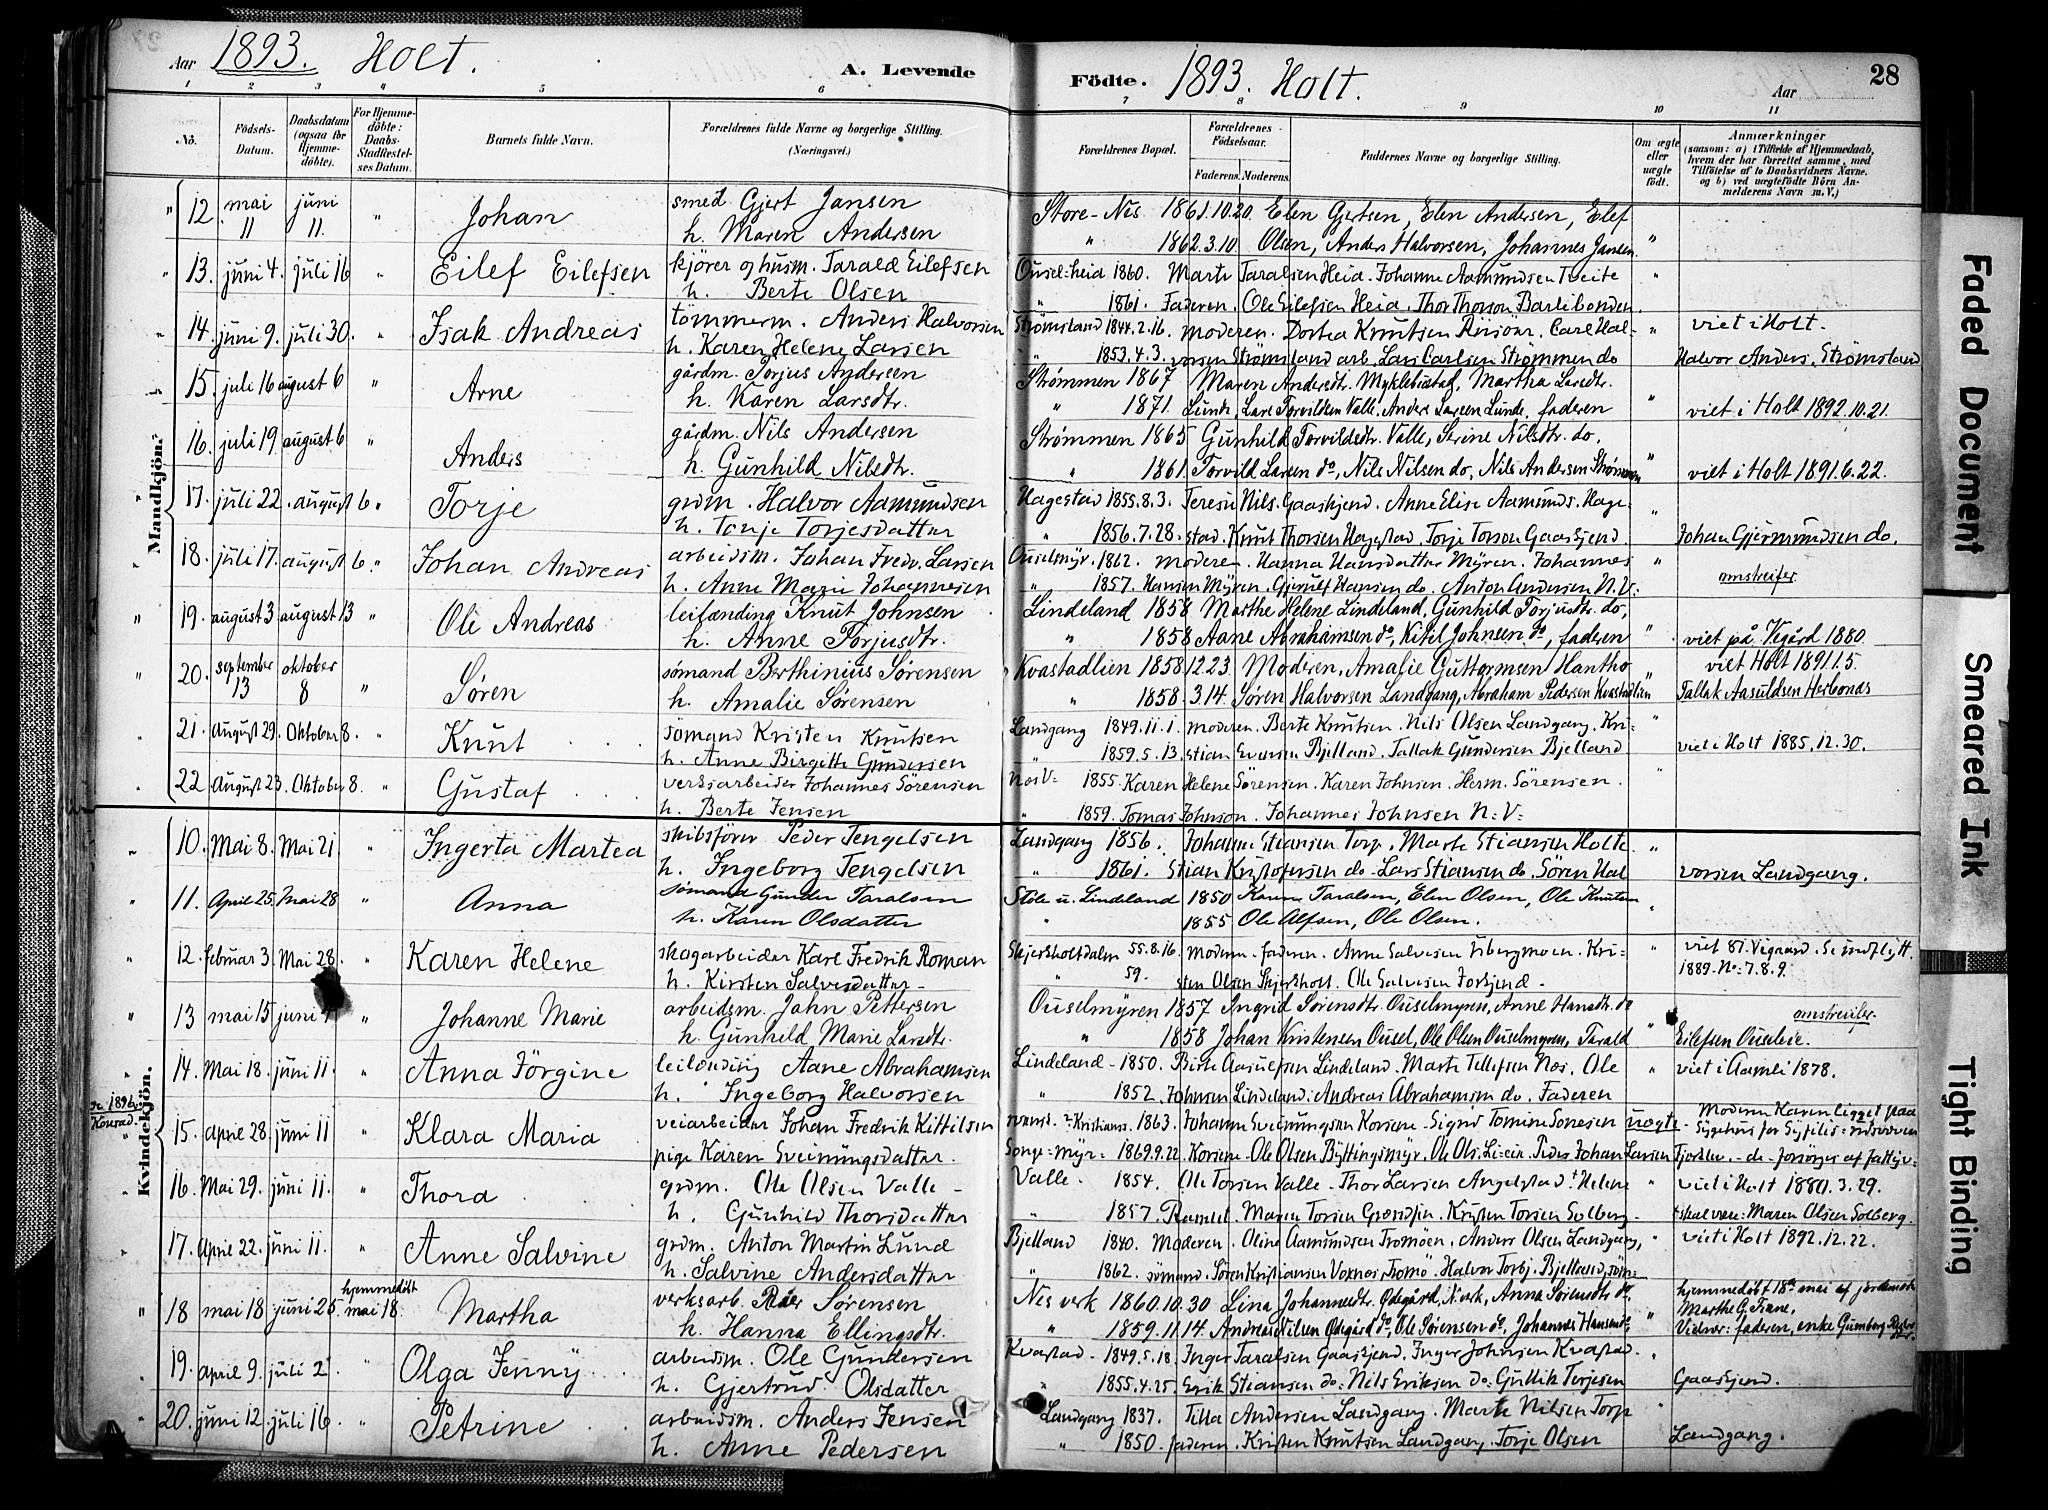 Aar 1893. Holt. A. Levende Födte. 1893. Holt. Aar 28
1 2 3 4 5 6 7 8 9 10 11
No. Födsels-Datum. Daabsdatum (ogsaa for Hjemmedöbte). For Hjemmedöbte: Daabs-Stadfæstelses Datum. Barnets fulde Navn. Forældrenes fulde Navne og borgerlige Stilling. (Næringsvei.) Forældrenes Bopæl. Forældrenes Födselsaar. Faderens. Moderens. Faddernes Navne og borgerlige Stilling. Om ægte eller uægte födt. Anmærkninger (saasom: a) i Tilfælde af Hjemmedaab, hvem der har forrettet samme, med Tilföielse af to Daabsvidners Navne. og b) ved uægtefödte Börn Anmelderens Navn m. V.)
Mandkjön.
12 mai 11 juni 11. " Johan smed Gjert Jansen Store-Nes 1861.10.20. Elen Gjertsen, Elen Andersen, Elef
h. Maren Andersen " 1862.3.10. Olsen, Anders Halvorsen, Johannes Jansen. "
13. juni 4. juli 16 " Eilef Eilefsen kjörer og husm. Tarald Eilefsen Ousel=heia 1860. Marte Taralsen Heia. Johanne Aamundsen Tveite "
h. Berte Olsen " 1861. Faderen. Ole Eilefsen Heia. Thor Thorson Barlibonden.
14. juni 9. juli 30. " Isak Andreas tömmerm. Anders Halvorsen Strømsland 1844.2.16. moderen. Dortea Knutsen Risöar. Carl Hal- " viet i Holt.
h. Karen Helene Larsen " 1853.4.3. vorsen Strømsland arb. Lars Carlsen Strømmen do Halvor Anders. Strømsland
15. juli 16 august 6 " Arne gårdm. Torjus Andersen Strømmen 1867 Maren Andersdtr. Myklebustad, Martha Larsdtr.
h. Karen Larsdtr. " 1871. Lunde, Lars Torvildsen Valle. Anders Larsen Lunde, faderen " viet i Holt 1892.10.21.
16. juli 19 august 6 " Anders gårdm. Nils Andersen Strømmen 1865 Gunhild Torvildsdtr. Valle, Serine Nilsdtr. do.
h. Gunhild Nilsdtr. " 1861. Torvild Larsen do, Nils Nilsen do, Nils Andersen Strømmen " viet i Holt 1891.6.22.
17. juli 22. august 6 " Torje grdm. Halvor Aamundsen Hagestad 1855.8.3. Teresie Nils. Gaaskjend. Anne Elise Aamunds. Hage- "
h. Tonje Torjesdatter " 1856.7.28. stad. Knut Thorsen Hagestad. Torje Torson Gaaskjend. Johan Gjermundsen do.
18. juli 17. august 6. " Johan Andreas arbeidsm. Johan Fredr. Larsen Ouselmyr. 1862. moderen. Hanna Hansdatter Myren. Johannes "
h. Anne Marie Johannesen " 1857. Hansen Myren. Gjerulf Hansen do. Anton Andersen N.V: omstreifer.
19. august 3 august 13 " Ole Andreas leilænding Knut Johnsen Lindeland 1858 Marthe Helene Lindeland, Gunhild Torjusdtr. do,
h. Anne Torjusdtr. " 1858 Aane Abrahamsen do, Kitil Johnsen do, faderen " viet på Vegård 1880.
20. september 13 oktober 8 " Søren sømand Berthinius Sørensen Kvastadlien 1858.12.23. Moderen, Amalie Guttormsen Hantho " viet Holt 1891.1.5.
h. Amalie Sørensen " 1858.3.14. Søren Halvorsen Landgang, Abraham Pedersen Kvastadlien Tallak Aasuldsen Herbonds
21. August 29. Oktober 8. " Knut sömand Kristen Knutsen Landgang 1849.11.1. moderen. Berte Knutsen. Nils Olsen Landgang. Kri- "
h. Anne Birgitte Gundersen " 1859.5.13. stian Evensen Bjelland. Tallak Gundersen Bjelland viet i Holt 1885.12.30.
22 August 23. Oktober 8. " Gustaf verksarbeider Johannes Sörensen Nes V= 1855. Karen Helene Sörensen. Karen Johnsen. Herm. Sörensen. "
h. Berte Jensen " 1859. Tomas Johnson. Johannes Johnsen N:V:
Kvindekjön.
10. Mai 8. Mai 21. " Ingerta Martea skibsförer Peder Tengelsen Landgang 1856. Johanne Stiansen Torp. Marte Stiansen Holte. "
h. Ingeborg Tengelsen " 1861. Stian Kristofersen do. Lars Stiansen do. Sören Hal vorsen Landgang.
11. April 25. Mai 28 " Anna sømand Gunder Taralsen Støle u. Lindeland 1850 Karen Taralsen, Elen Olsen, Ole Knutsen "
h. Karen Olsdatter " 1855 Ole Alfsen, Ole Olsen.
12. februar 3. Mai 28. " Karen Helene skogarbeider Karl Fredrik Roman Skjerkholtdalen 55.8.16. moderen. faderen. Anne Salvesen Ubergmoen. Kri= " viet 81. Vegaard. Se indflytt.
h. Kirsten Salvesdatter - " 59. sten Olsen Skjerkholt. Ole Salvesen Torkjend. 1889. No: 7.8.9.
13 mai 15 juni 4 " Johanne Marie arbeidsm. John Pettersen Ouselmyren 1857 Ingrid Sørensdtr. Ouselmyren, Anne Hansdtr. do omstreifer.
h. Gunhild Marie Larsdtr. " 1858 Johan Kristensen Ousel, Ole Olsen Ouselmyren, Tarald Eilefsen Ouselheie.
14. Mai 18. juni 11. " Anna Jörgine leilönding Aane Abrahamsen Lindeland - 1850. Birte Aasulfsen Lindeland. Marte Tellefsen Nes. Ole " viet i Aamli 1878.
h. Ingeborg Halvorsen " 1852. Johnsen Lindeland. Andreas Abrahamsen do. Faderen
se 1896. Konrad.
15. April 28. juni 11 " Klara Maria veiarbeider Johan Fredrik Kittilsen 1863. uægte - Moderen Karen ligger paa
pige Karen Sveinungsdatter. Songe=Myr= 1869.9.22. Ole Olsen Byttingsmyr. Peder Johan Larsen
16. Mai 29. juni 11. " Thora grdm. Ole Olsen Valle - Valle. 1854. Ole Torsen Valle. Thor Larsen Angelstad. † Helene " viet i Holt 1880.3.29.
h. Gunhild Thorsdatter " 1857. Ramlet. Maren Torsen. Kristen Torsen Solberg. † skal være: Maren Olsen Solberg.
17. April 22. juni 11. " Anne Salvine grdm. Anton Martin Lund Bjelland 1840. Moderen. Oline Aamundsen Tromöen. Anders Olsen Landgang, " viet i Holt 1892.12.22.
h. Salvine Andersdatter " 1862. sömand. Sören Kristiansen Voxnes, Tromö. Halvor Torbj. Bjelland, söm=
18 mai 18 juni 25. hjemmedöbt mai 18. Martha verksarb. Peder Sørensen Nes verk 1860.10.30 Lina Johannesdtr. Ødegård, N.verk, Anna Sørensdtr do, hjemmedøbt 18de mai af jordemoder
h. Hanna Ellingsdtr. " 1859.11.14. Andreas Nilsen Ødegård do, Ole Sørensen do, Johannes Hansen do. " Marthe G. Fiane. Vidner: faderen, enke Gumborg
19. april 9. juli 2 " Olga Jenny arbeidsm. Ole Gundersen Kvastad - 1849.5.18. Inger Taralsen Gaaskjend. Inger Johnsen Kvastad. "
h. Gjertrud Olsdatter " 1855.4.25. Erik Stiansen do: Nils Eriksen do: Gullik Terjesen Gaaskjend.
20. juni 12. juli 16. " Petrine arbeidsm. Anders Jensen Landgang 1837. Tilla Andersen Landgang. Marte Nilsen Torp "
h. Anne Pedersen " 1850. faderen. Kristen Knutsen Landgang. Torje Olsen Landgang.
Faded Document
Smeared Ink
Tight Binding